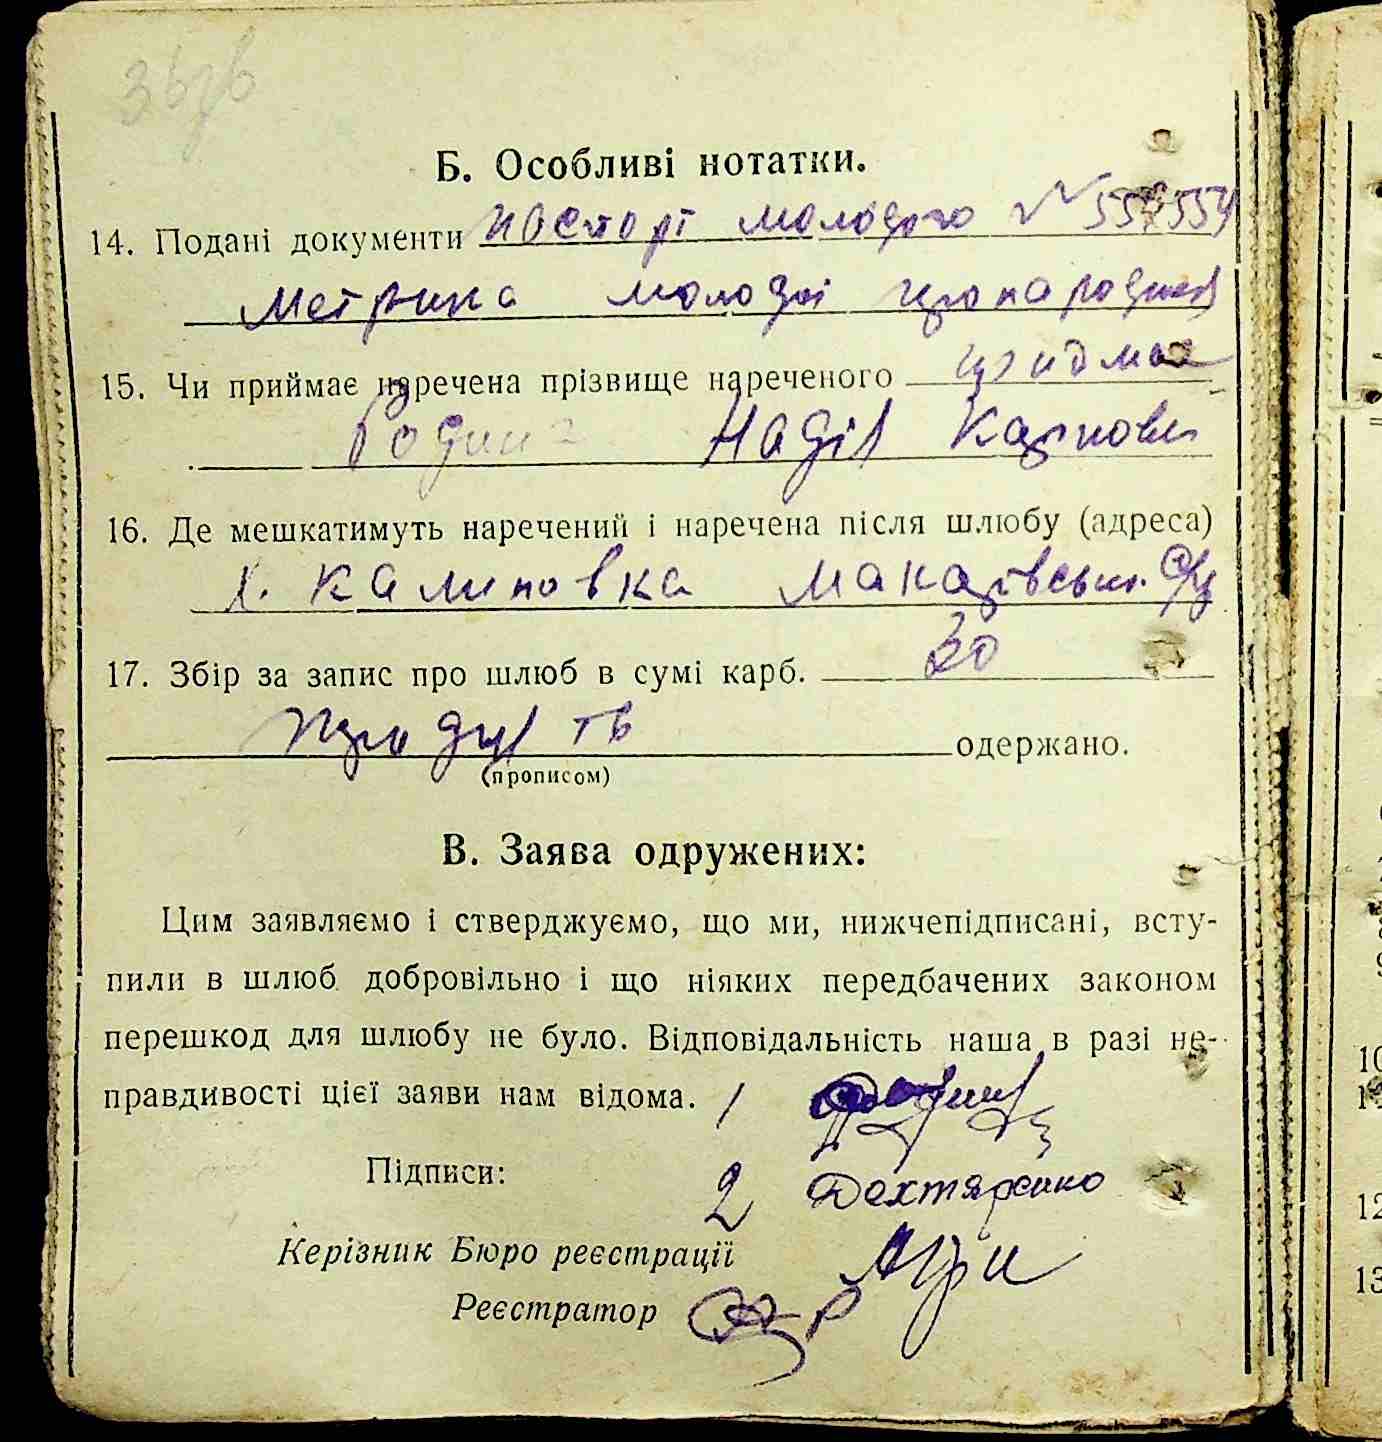 Б. Особливі нотатки.
14. Подані документи паспорт молодого № 557554
Метрика молодої про народженя
15. Чи приймає наречена прізвище нареченого приймає
Родина Надія Карповна
16. Де мешкатимуть наречений і наречена після шлюбу (адреса)
с. Калиновка Макарівськ.
17. Збір за запис про шлюб в сумі карб. 30
тридцять одержано.
(прописом)
В. Заява одружених:
Цим заявляємо і стверджуємо, що ми, нижчепідписані, всту-
пили в шлюб добровільно і що ніяких передбачених законом
перешкод для шлюбу не було. Відповідальність наша в разі не-
правдивості цієї заяви нам відома. 1
Підписи: 2 Дехтяренко
Керізник Бюро реєстрації
Реєстратор
10
12
13